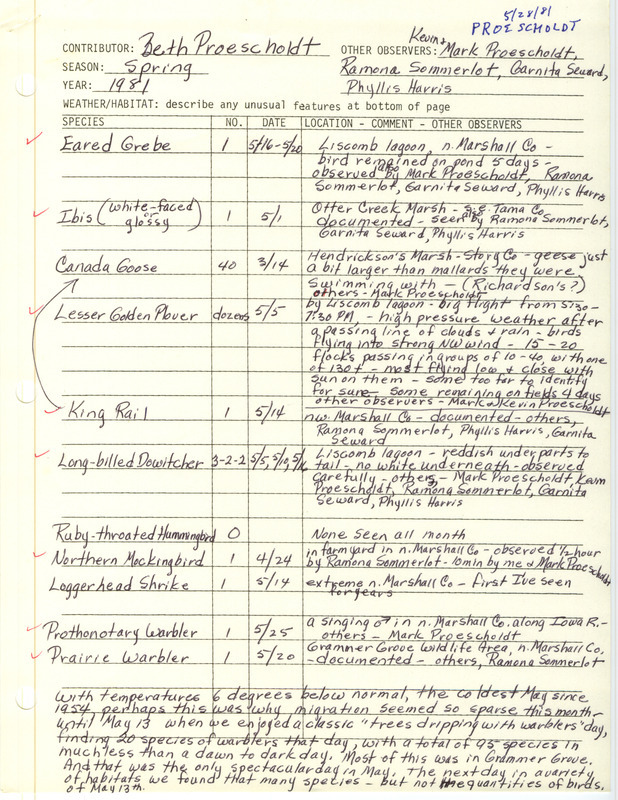 5/28/81
PROESCHOLDT
CONTRIBUTOR: Beth Proescholdt OTHER OBSERVERS: Kevin & Mark Proescholdt,
SEASON: Spring Ramona Sommerlot, Garnita Seward,
YEAR: 1981 Phyllis Harris
WEATHER/HABITAT: describe any unusual features at bottom of page
SPECIES NO. DATE LOCATION - COMMENT - OTHER OBSERVERS
Eared Grebe 1 5/16-5/20 Liscomb lagoon, n. Marshall Co -
bird remained on pond 5 days -
observed also by Mark Proescholdt, Ramona
Sommerlot, Garnita Seward, Phyllis Harris
Ibis (white-faced or glossy) 1 5/1 Otter Creek Marsh - Tama Co
documented - seen by Ramona Sommerlot,
Garnita Seward, Phyllis Harris
Canada Goose 40 3/14 Hendrickson's Marsh - Story Co - geese just
a bit larger than mallards they were
swimming with - (Richardson's?)
others - Mark Proescholdt
Lesser Golden Plover dozens 5/5 by Liscomb lagoon - big flight from 5:30-
7:30 PM, - high pressure weather after
a passing line of clouds & rain - birds
flying into strong NW wind - 15-20
flocks passing in groups of 10-40 with one
of 130± - most flying low & close with
sun on them - some too far to identify
for sure. Some remaining on fields 4 days
other observers - Mark & Kevin Proescholdt
King Rail 1 5/14 nw. Marshall Co - documented - others,
Ramona Sommerlot, Phyllis Harris, Garnita
Seward
Long-billed Dowitcher 3-2-2 5/5, 5/10, 5/16 Liscomb lagoon - reddish underparts to
tail - no white underneath - observed
carefully - others, - Mark Proescholdt Kevin
Proescholdt, Ramona Sommerlot, Garnita
Seward, Phyllis Harris
Ruby-throated Hummingbird 0 None seen all month
Northern Mockingbird 1 4/24 in farmyard in n. Marshall Co - observed 1/2 hour
by Ramona Sommerlot - 10 min by me & Mark Proescholdt
Loggerhead Shrike 1 5/14 extreme n. Marshall Co - first I've seen
for years
Prothonotary Warbler 1 5/25 a singing ♂ in n. Marshall Co. along Iowa R. -
others - Mark Proescholdt
Prairie Warbler 1 5/20 Grammer Grove Wildlife Area, n. Marshall Co.
- documented - others, Ramona Sommerlot
With temperatures 6 degrees below normal, the coldest May since
1954, perhaps this was why migration seemed so sparse this month -
until May 13 when we enjoyed a classic "trees dripping with warblers" day,
finding 20 species of warblers that day, with a total of 95 species in
much less than a dawn to dark day. Most of this was in Grammer Grove.
And that was the only spectacular day in May. The next day in a variety
of habitats we found that many species - but not the quantities of birds,
of May 13th.